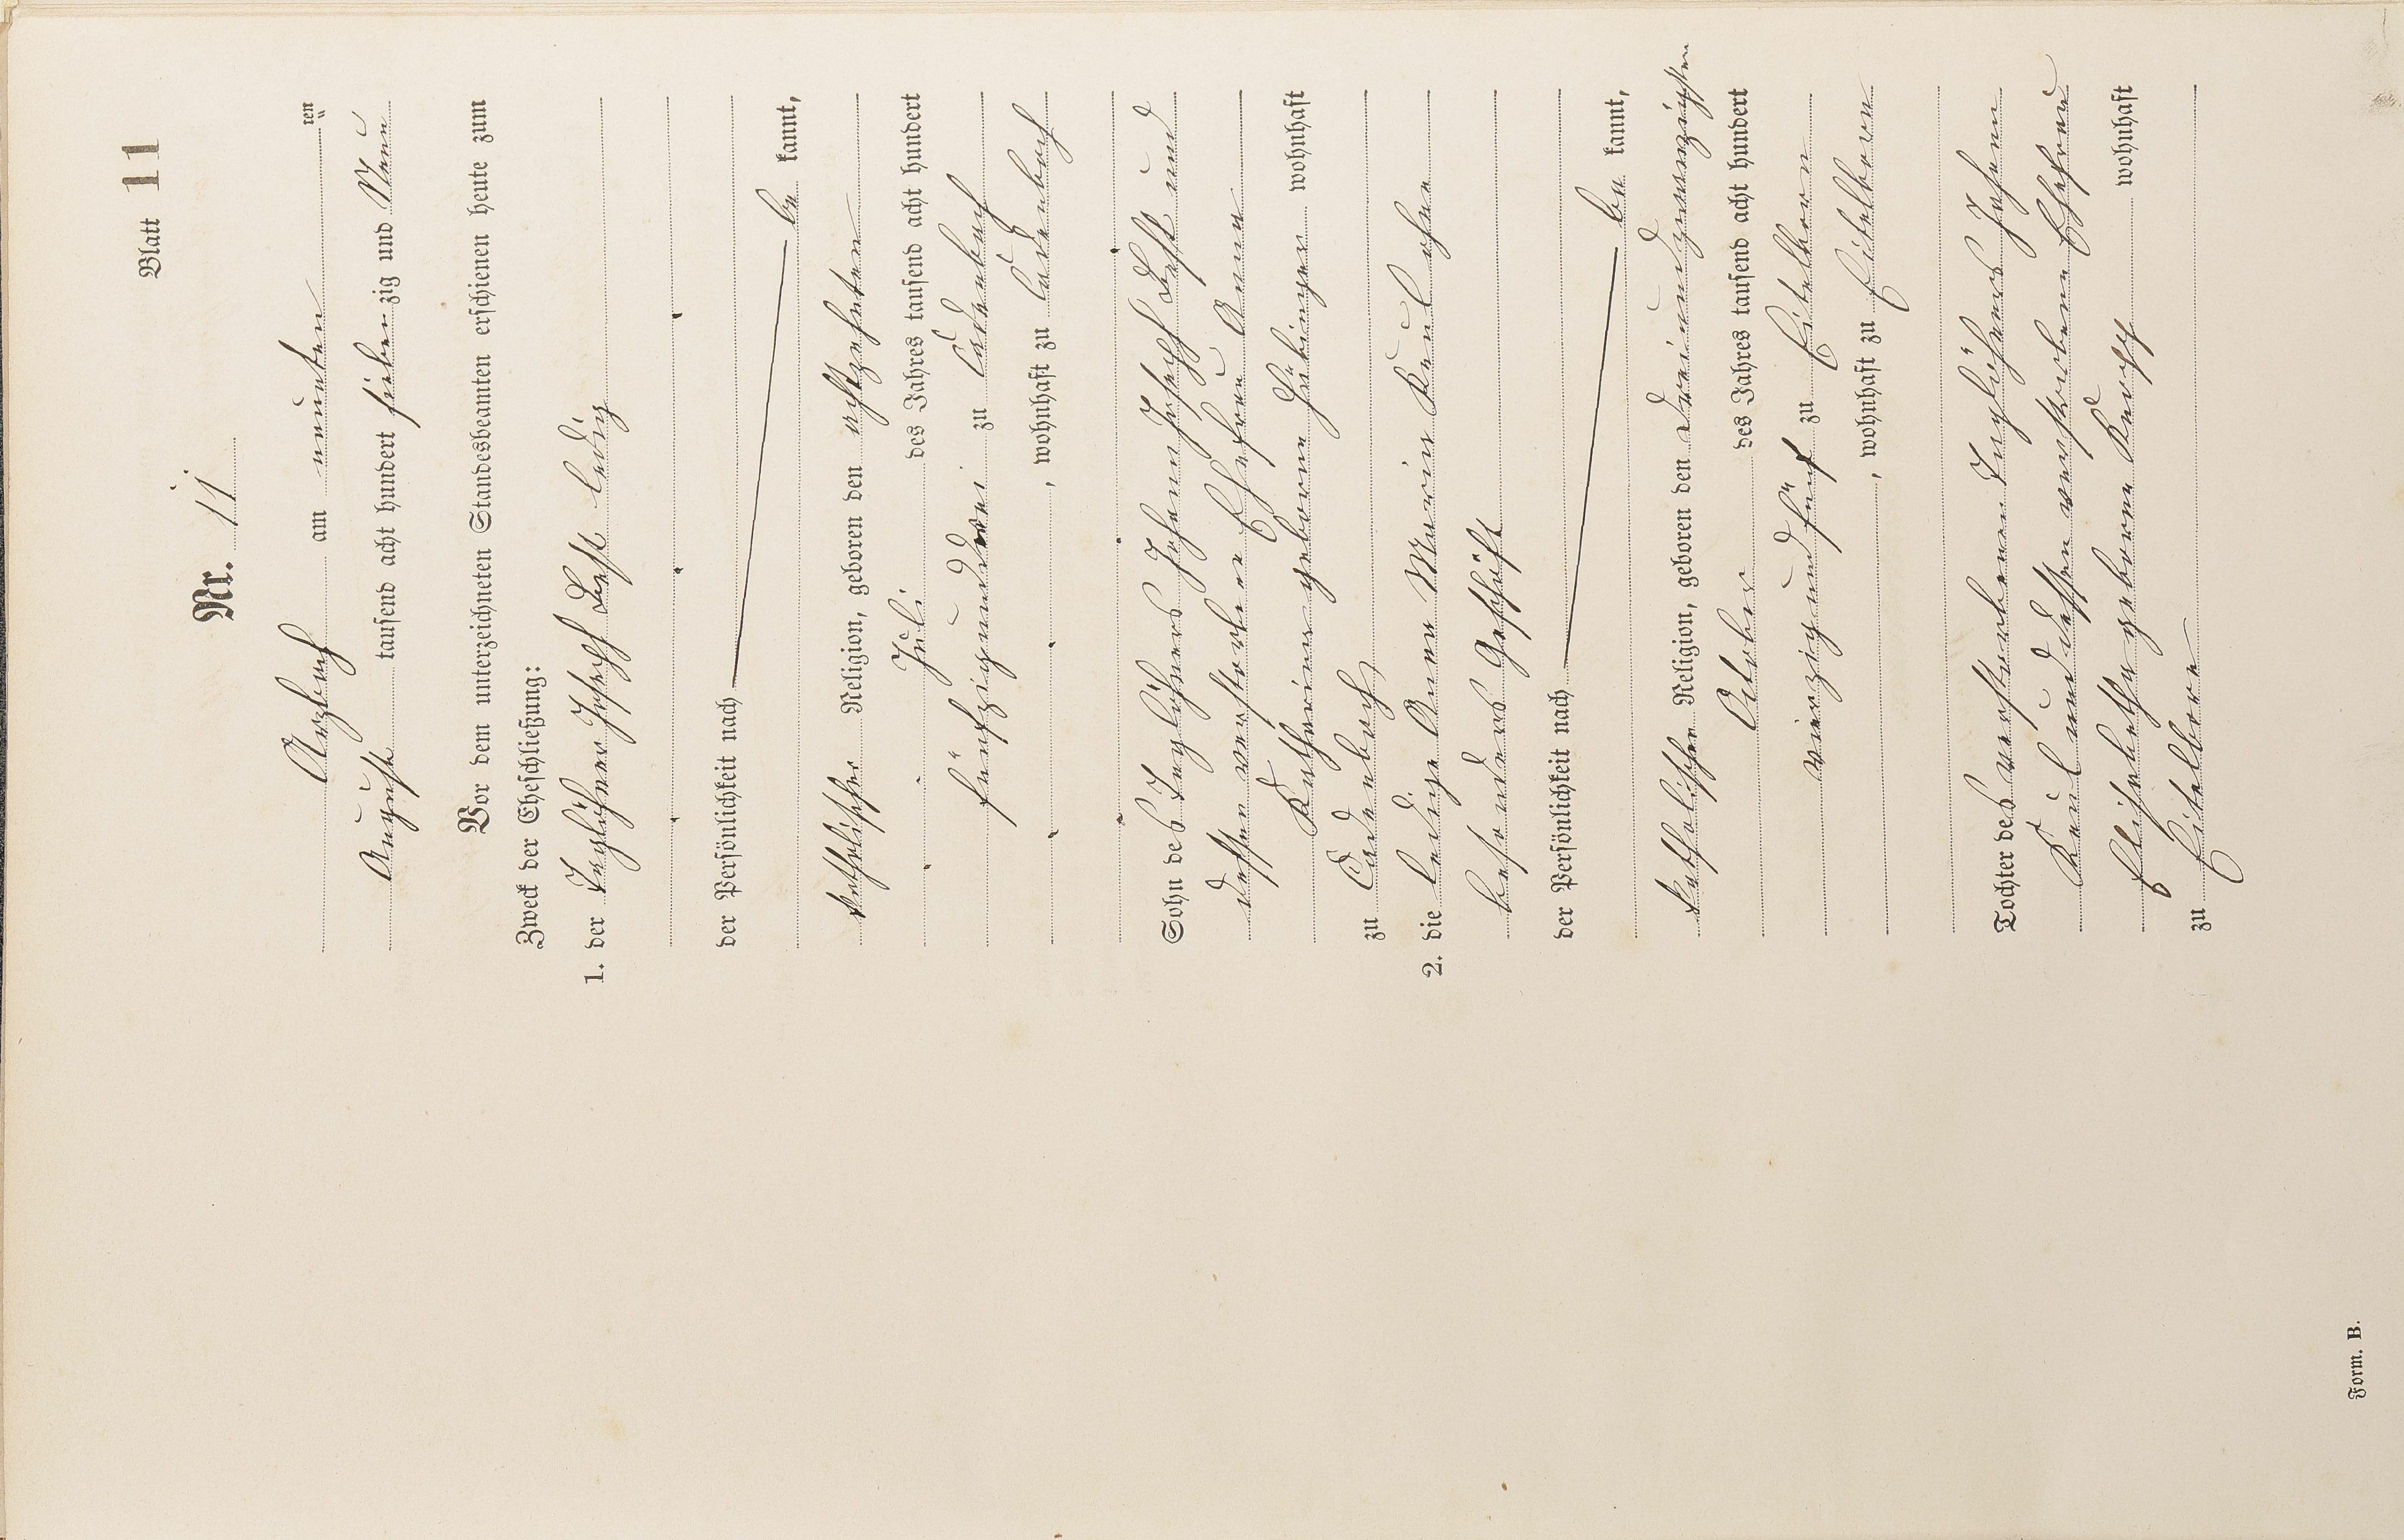 Blatt 11
Nr. 11
Arzbach am neunten ten
August tausend acht hundert siebenzig und Neun
Vor dem unterzeichneten Standesbeamten erschienen heute zum
Zweck der Eheschließung:
1. der Taglöhner Joseph Best ledig
der Persönlichkeit nach
be kannt,
katholischer Religion, geboren den achtzehnten
Juli des Jahres tausend acht hundert
fünfzigunddrei zu Cadenbach
, wohnhaft zu Cadenbach
Sohn des Taglöhners Johann Joseph Best und
dessen verstorbene Ehefrau Anna
Katharina geborene wohnhaft
zu Cadenbach
2. die ledige Anna Maria Keul ohne
besonderes Geschäft
der Persönlichkeit nach
be kannt,
katholischer Religion, geboren den dreiundzwanzigsten
October des Jahres tausend acht hundert
vierzigundfünf zu Eitelborn
, wohnhaft zu Eitelborn
Tochter des verstorbenen Taglöhners Johann
Keul und dessen verstorbene Ehefrau
Elisabetha geborene wohnhaft
zu Eitelborn
Form. B.